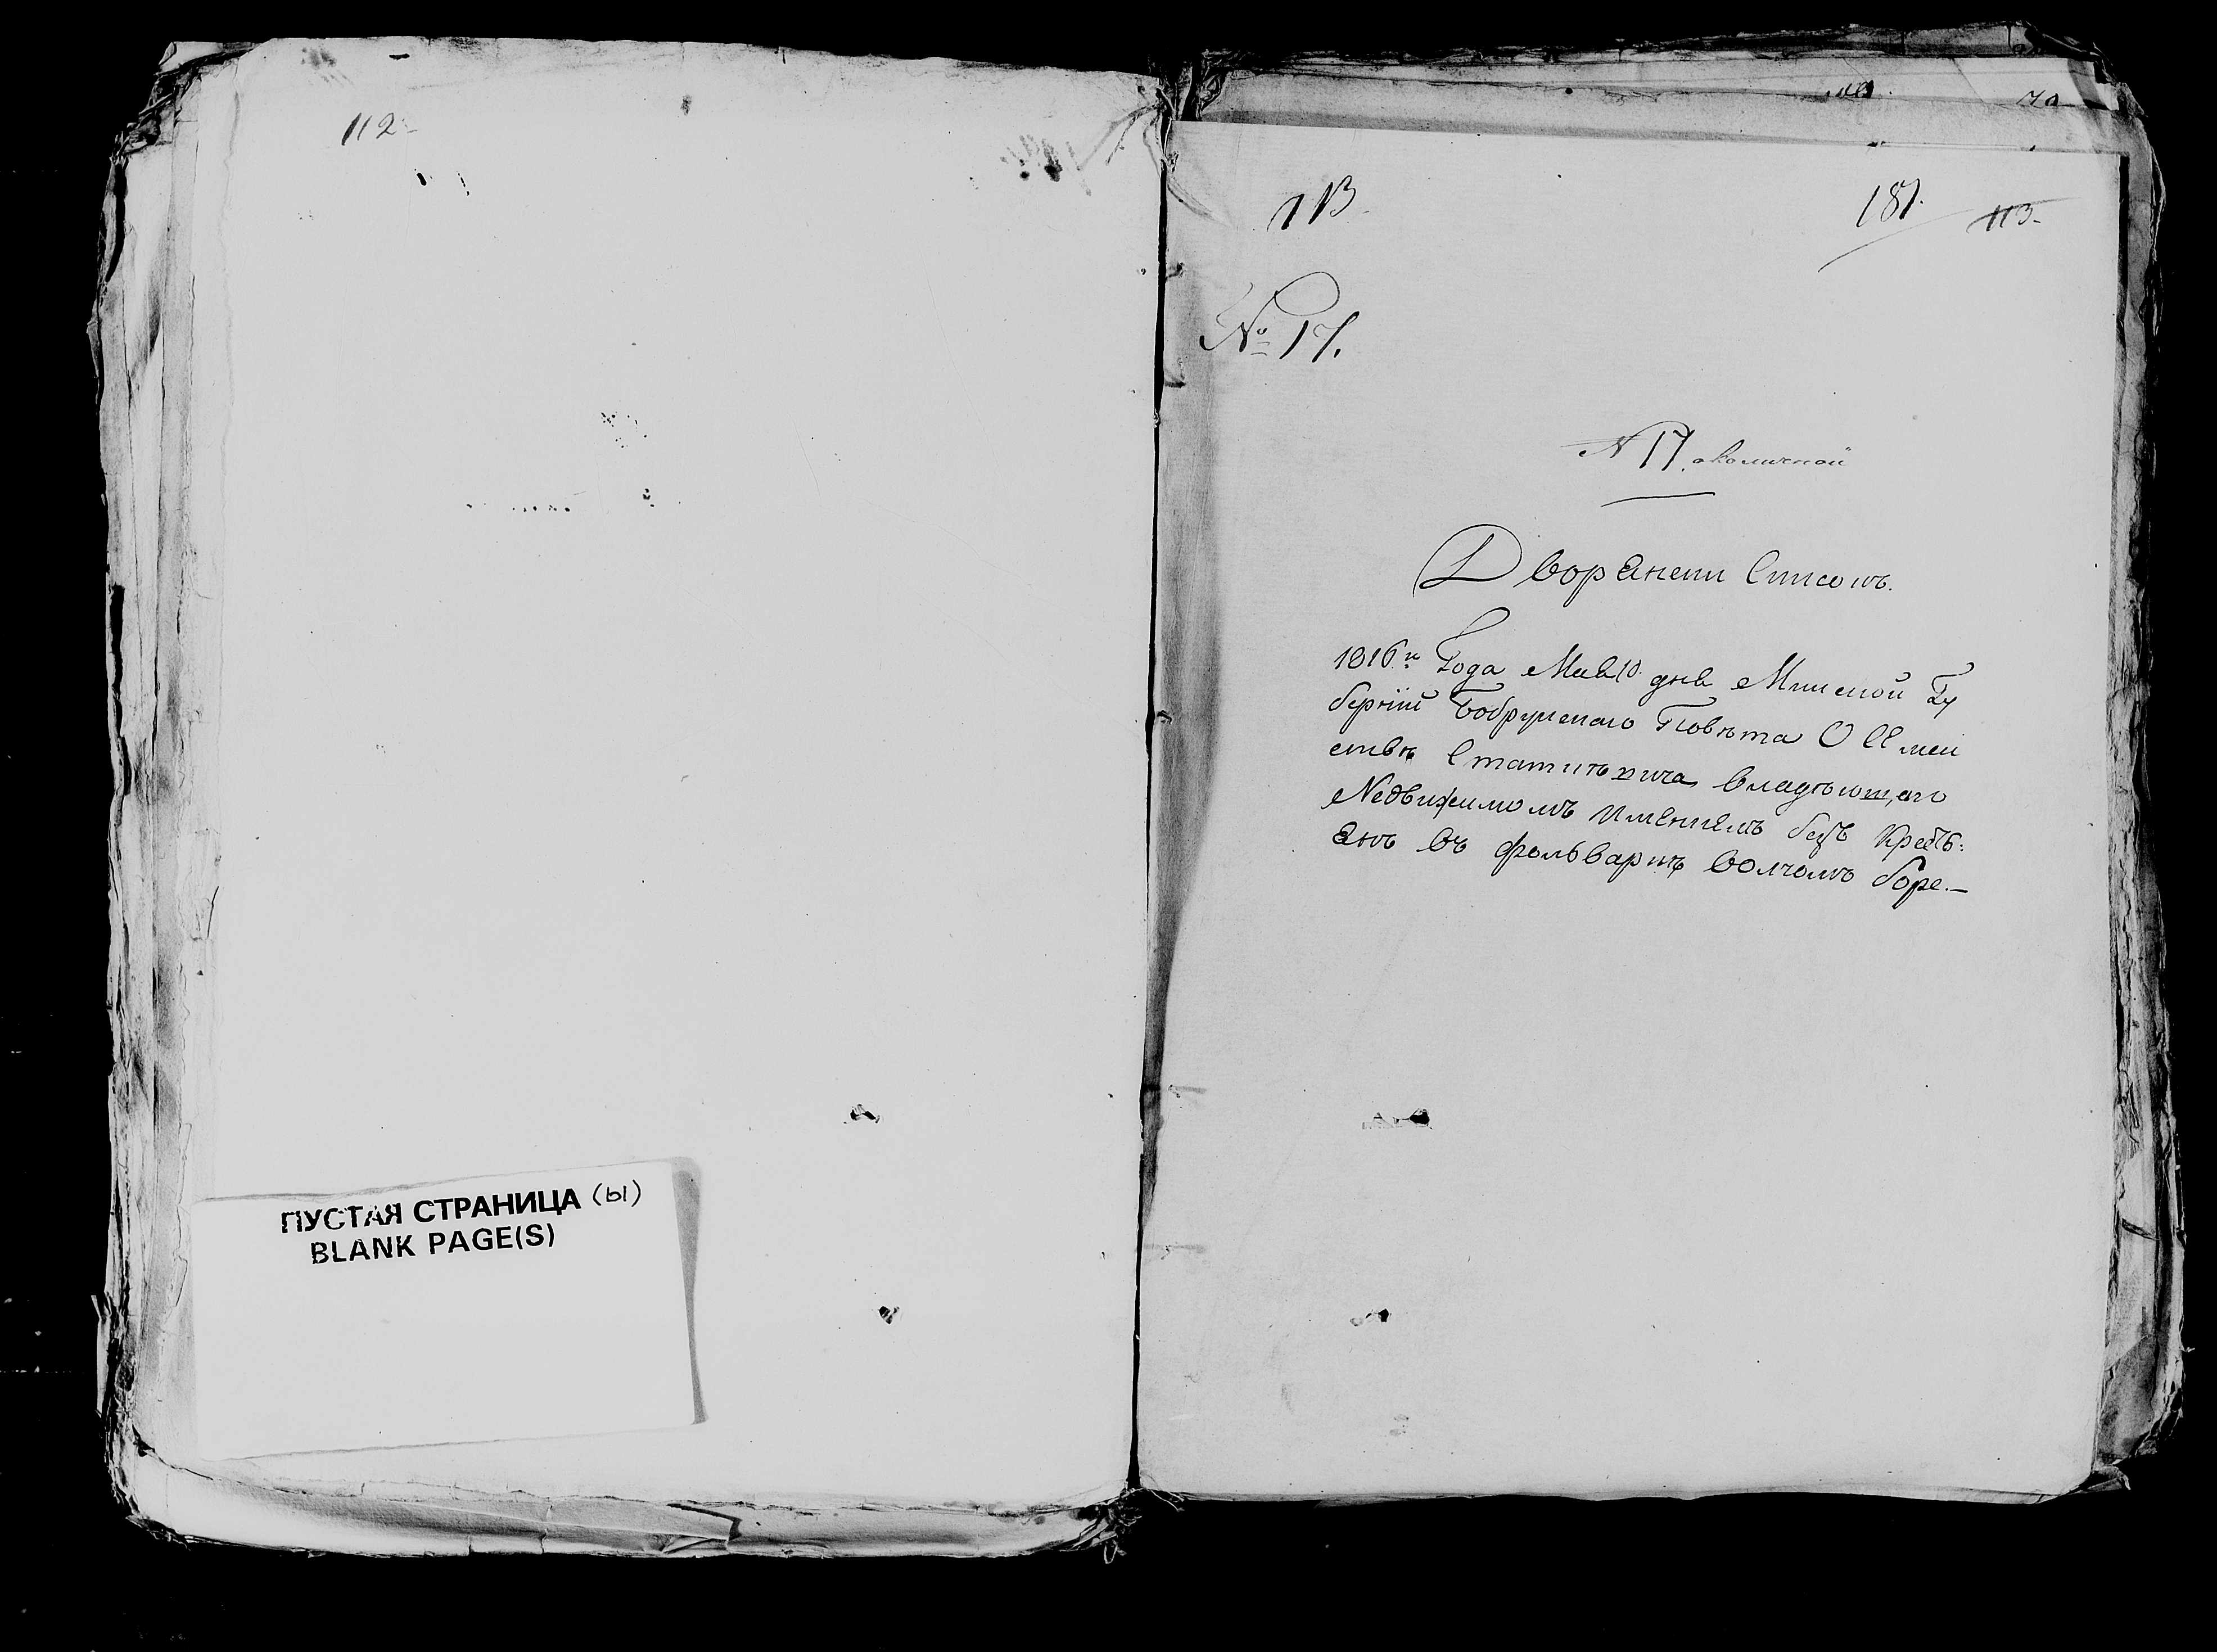 112
ПУСТАЯ СТРАНИЦА (ы)
BLANK PAGE(S)
113
181.
113
№ 17.
N 17. околичной
Дворянски Списокъ.
1816го Года Мая 10 дня Минской Гу
берніи Бобруйскаго Повѣта О Семей
ствѣ владѣющаго
Недвижимомъ имѣніемъ безъ Кресть:
янъ въ фольваркѣ Волчомъ боре.—